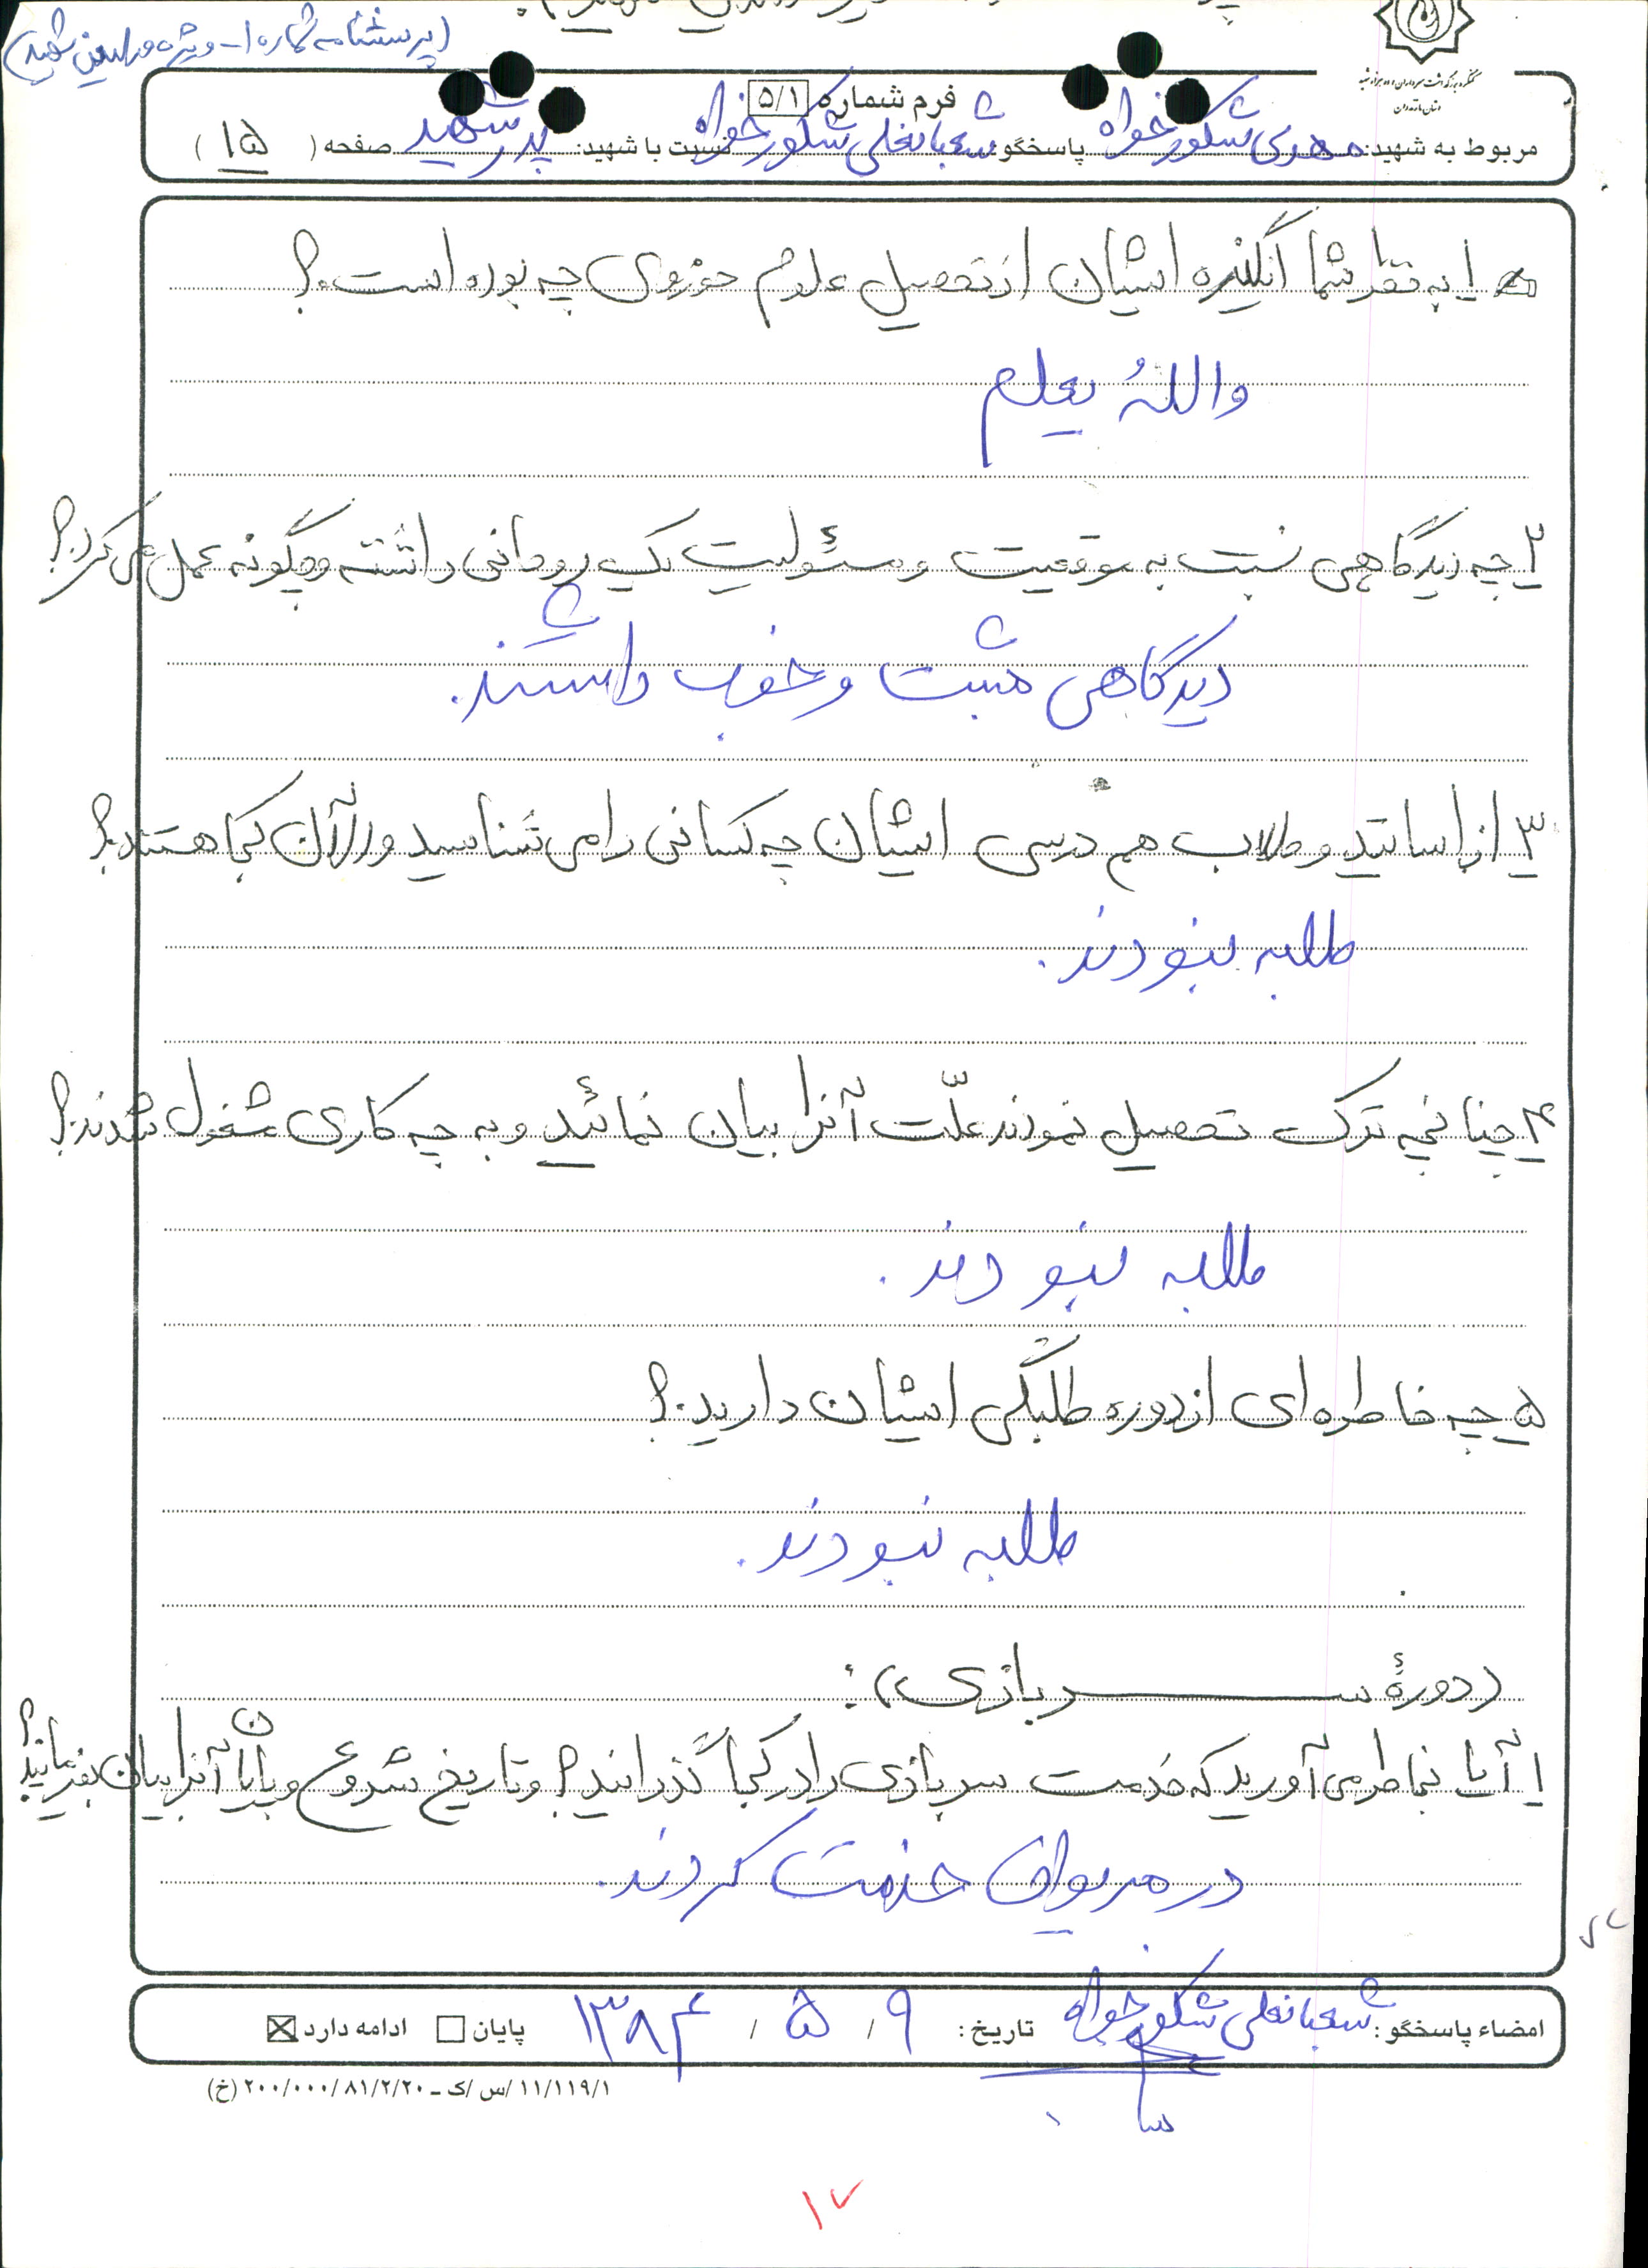 (پرسشنامه شماره ۱ - ویژه والدین شهید)
کنگره بزرگداشت سرداران و ده هزار شهید
استان مازندران
فرم شماره ۵/۱
مربوط به شهید: مهدی شکور خواه پاسخگو: شعبانعلی شکور خواه نسبت با شهید: پدر شهید صفحه ( ۱۵ )
۱ به نظر شما انگیزه ایشان از تحصیل علوم حوزوی چه بوده است.؟
والله یعلم
۲ چه دیدگاهی نسبت به موقعیت و مسئولیت یک روحانی داشته و چگونه عمل می کرد.؟
دیدگاهی مثبت و خوب داشتند.
۳ از اساتید و طلاب هم درسی ایشان چه کسانی را می شناسید و الآن کجا هستند.؟
طلبه نبودند.
۴ چنانچه ترک تحصیل نمودند علّت آنرا بیان نمائید و به چه کاری مشغول شدند.؟
طلبه نبودند.
۵ چه خاطره ای از دوره طلبگی ایشان دارید.؟
طلبه نبودند.
(دورهٔ سربازی):
۱ آیا بخاطر می آورید که خدمت سربازی را در کجا گذراند؟ و تاریخ شروع و پایان آنرا بیان بفرمائید؟
در مریوان خدمت کردند.
امضاء پاسخگو: شعبانعلی شکور خواه تاریخ: ۹ / ۵ / ۱۳۸۴ پایان ☐ ادامه دارد ☒
۱۱/۱۱۹/۱ /س /ک - ۲۰۰/۰۰۰/۸۱/۲/۲۰ (خ)
۱۷